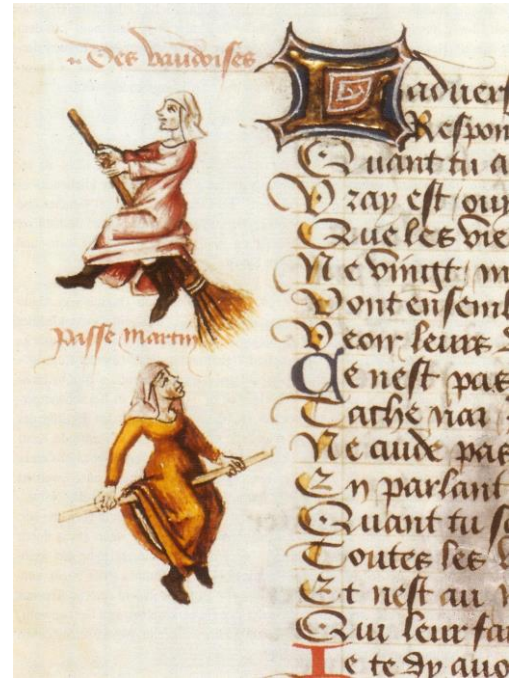 Des vaudoises
Laduers
Respon
Quant tu a
Vray est / ouy
Que les vie
Ne vingt / m
Vont ensembl
passe martin
Veoir leurs
Ce nest pas
Tache nai
Ne cuide pas
En parlant
Quant tu
Toutes les
Et nest au
Qui leur fai
Ie te dy auo